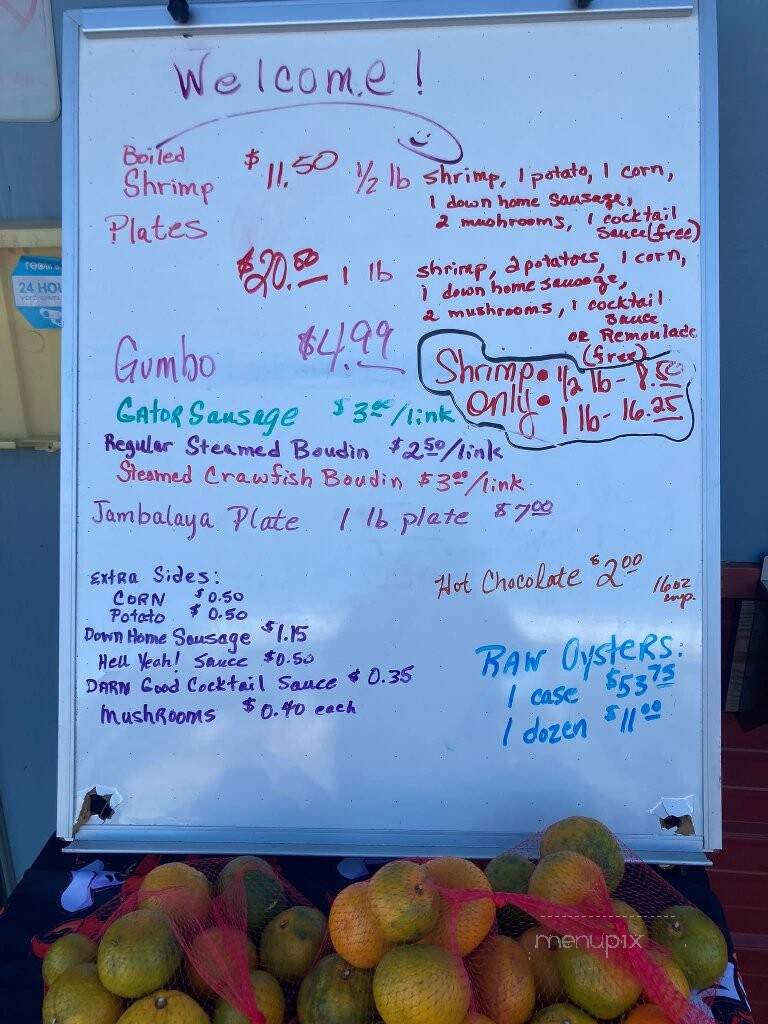 Welcome!
Boiled
Shrimp
Plates
$11.50 1/2 lb shrimp, 1 potato, 1 corn,
1 down home sausage,
2 mushrooms, 1 cocktail
sauce (free)
$20.00 1 lb shrimp, 2 potatoes, 1 corn,
1 down home sausage,
2 mushrooms, 1 cocktail
sauce
or Remoulade
(free)
Gumbo $4.99
Shrimp • 1/2 lb - 8.50
Only • 1 lb - 16.25
Gator Sausage $3.00/link
Regular Steamed Boudin $2.50/link
Steamed Crawfish Boudin $3.00/link
Jambalaya Plate 1 lb plate $7.00
Hot Chocolate $2.00 16oz
cup.
Extra Sides:
Corn $0.50
Potato $0.50
Down Home Sausage $1.15
Hell Yeah! Sauce $0.50
DARN Good Cocktail Sauce $0.35
Mushrooms $0.40 each
RAW Oysters:
1 case $53.75
1 dozen $11.00
24 HOU
menupix